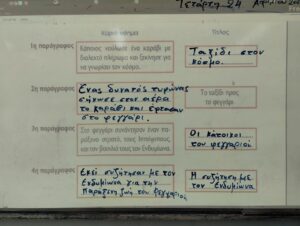 Τετάρτη 24
Κύριο νόημα
Τίτλος
1η παράγραφος
Κάποιος ναύλωσε ένα καράβι με
διαλεχτό πλήρωμα και ξεκίνησε για
να γνωρίσει τον κόσμο.
Ταξίδι στον
κόσμο.
2η παράγραφος
Ένας δυνατός τυφώνας
σήκωσε στον αέρα
το καράβι και έφτασαν
στο φεγγάρι.
Το ταξίδι προς
το φεγγάρι
3η παράγραφος
Στο φεγγάρι συνάντησαν έναν πα-
ράξενο στρατό, τους Ιππόγυπους,
και τον βασιλιά τους τον Ενδυμίωνα.
Οι κάτοικοι
του φεγγαριού
4η παράγραφος
Εκεί συζήτησαν με τον
Ενδυμίωνα για την
παράξενη ζωή του φεγγαριού
Η συζήτηση με
τον Ενδυμίωνα